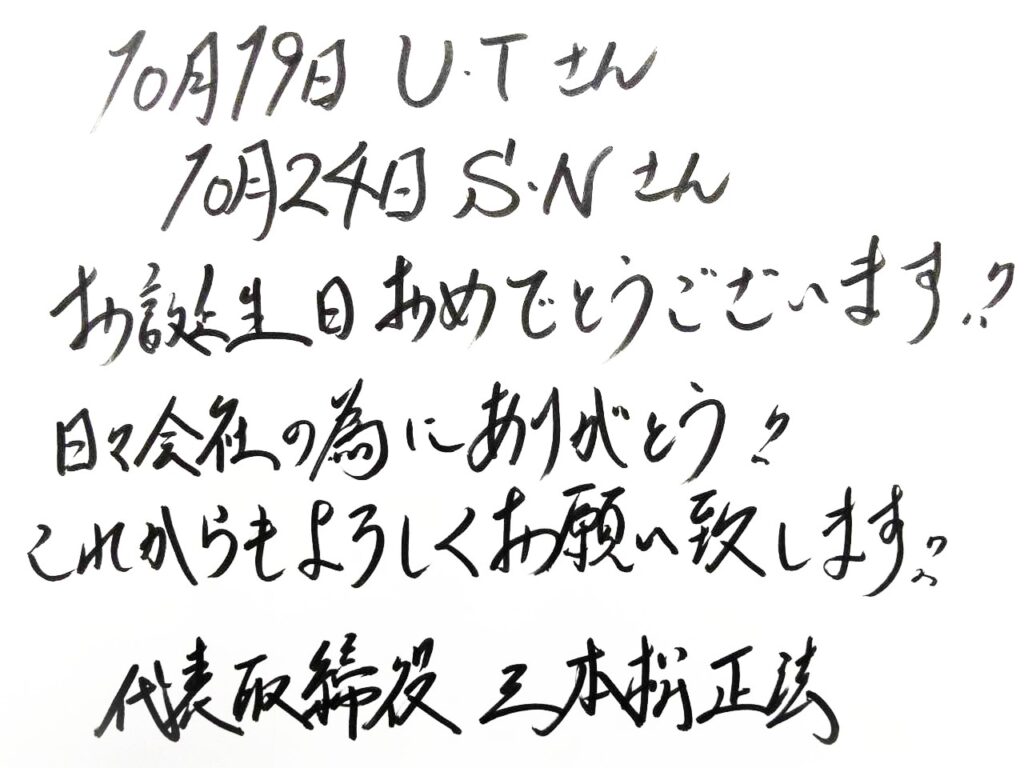 10月19日 U.Tさん
10月24日 S.Nさん
お誕生日おめでとうございます!!
日々会社の為にありがとう!
これからもよろしくお願い致します!!
代表取締役 三本松正法